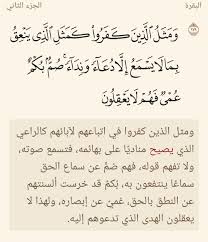 البقرة الجزء الثاني
وَمَثَلُ ٱلَّذِينَ كَفَرُوا۟ كَمَثَلِ ٱلَّذِى يَنْعِقُ
بِمَا لَا يَسْمَعُ إِلَّا دُعَآءً وَنِدَآءً ۚ صُمٌّۢ بُكْمٌ
عُمْىٌ فَهُمْ لَا يَعْقِلُونَ ١٧١
ومثل الذين كفروا في اتباعهم لآبائهم كالراعي
الذي يصيح مناديًا على بهائمه، فتسمع صوته،
ولا تفهم قوله، فهم صُمٌّ عن سماع الحق
سماعًا ينتفعون به، بُكمٌ قد خرست ألسنتهم
عن النطق بالحق، عُميٌ عن إبصاره، ولهذا لا
يعقلون الهدى الذي تدعوهم إليه.